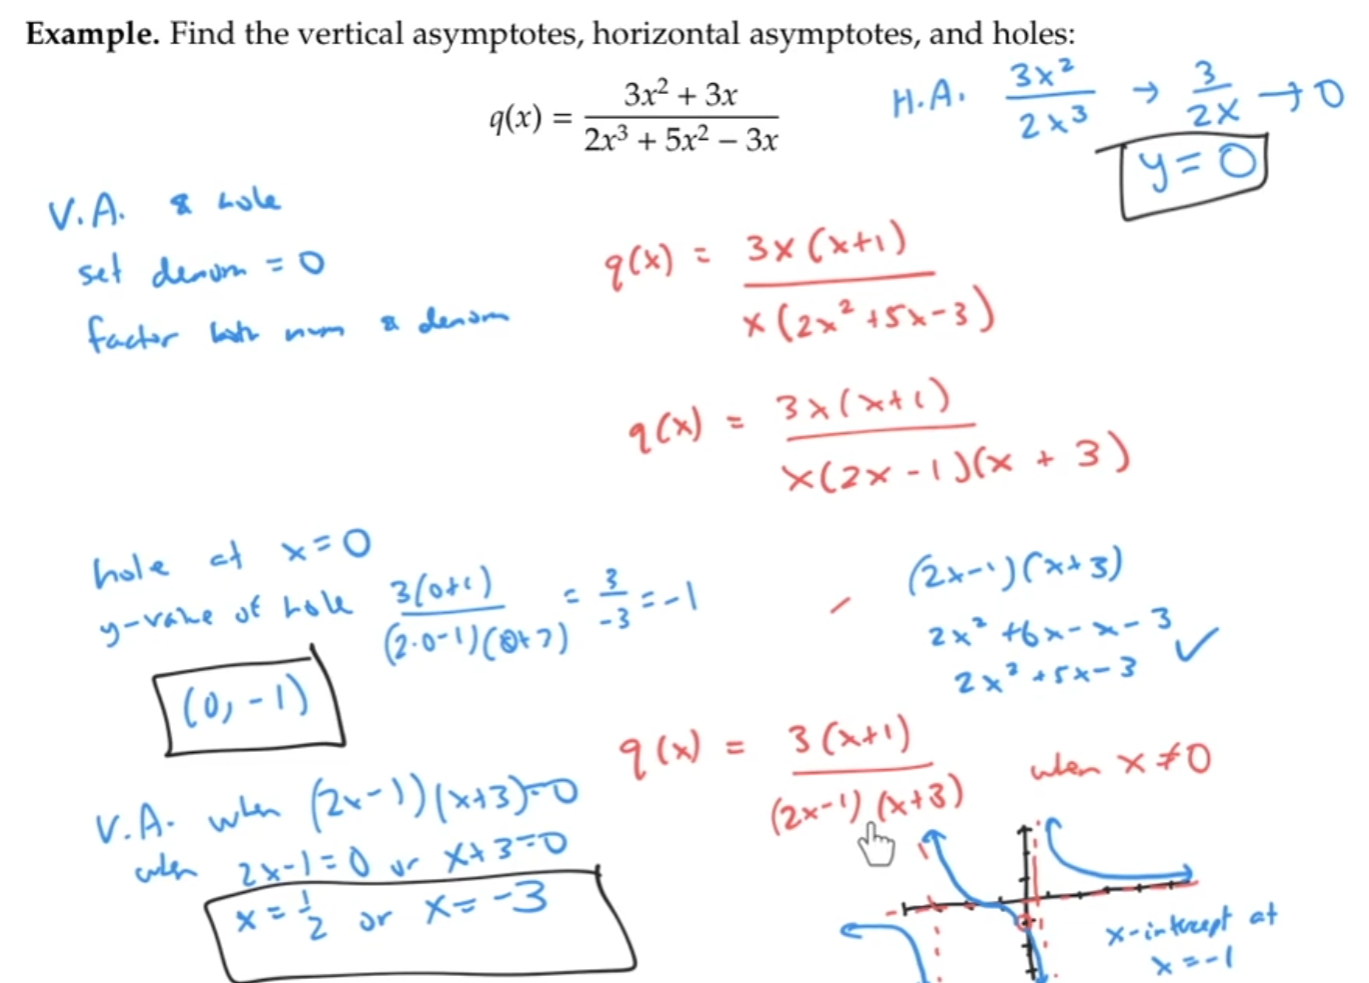 Example. Find the vertical asymptotes, horizontal asymptotes, and holes:
q(x) = (3x² + 3x)/(2x³ + 5x² − 3x)
H.A. 3x²/2x³ → 3/2x → 0
y = 0
V.A. & hole
set denom = 0
factor both num & denom
q(x) = 3x(x+1)/x(2x²+5x-3)
q(x) = 3x(x+1)/x(2x-1)(x+3)
hole at x=0
y-value of hole 3(0+1)/(2·0-1)(0+3) = 3/-3 = -1
(0, -1)
(2x-1)(x+3)
2x² +6x-x-3 ✓
2x² +5x-3
q(x) = 3(x+1)/(2x-1)(x+3) when x≠0
V.A. when (2x-1)(x+3)=0
when 2x-1=0 or x+3=0
x=1/2 or x=-3
x-intercept at
x=-1